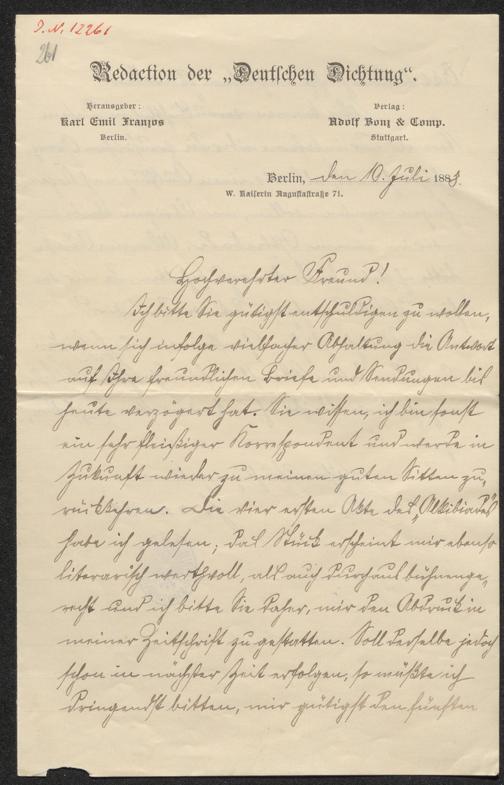 I. N. 12261
261
Redaction der „Deutschen Dichtung“.
Herausgeber:
Karl Emil Franzos
Berlin.
Verlag:
Adolf Bonz & Comp.
Stuttgart.
Berlin, den 10. Juli 1888.
W. Kaiserin Augustastraße 71.
Hochverehrter Freund!
Ich bitte Sie gütigst entschuldigen zu wollen,
wenn sich infolge vielfacher Abhaltung die Antwort
auf Ihre freundlichen Briefe und Sendungen bis
heute verzögert hat. Sie wissen, ich bin sonst
ein sehr fleißiger Korrespondent und werde in
Zukunft wieder zu meinen guten Sitten zu-
rückkehren. Die vier ersten Akte des „Alkibiades“
habe ich gelesen; das Stück erscheint mir ebenso
literarisch werthvoll, als auch durchaus bühnenge-
recht und ich bitte Sie daher, mir den Abdruck in
meiner Zeitschrift zu gestatten. Soll derselbe jedoch
schon in nächster Zeit erfolgen, so müßte ich
dringendst bitten, mir gütigst den fünften